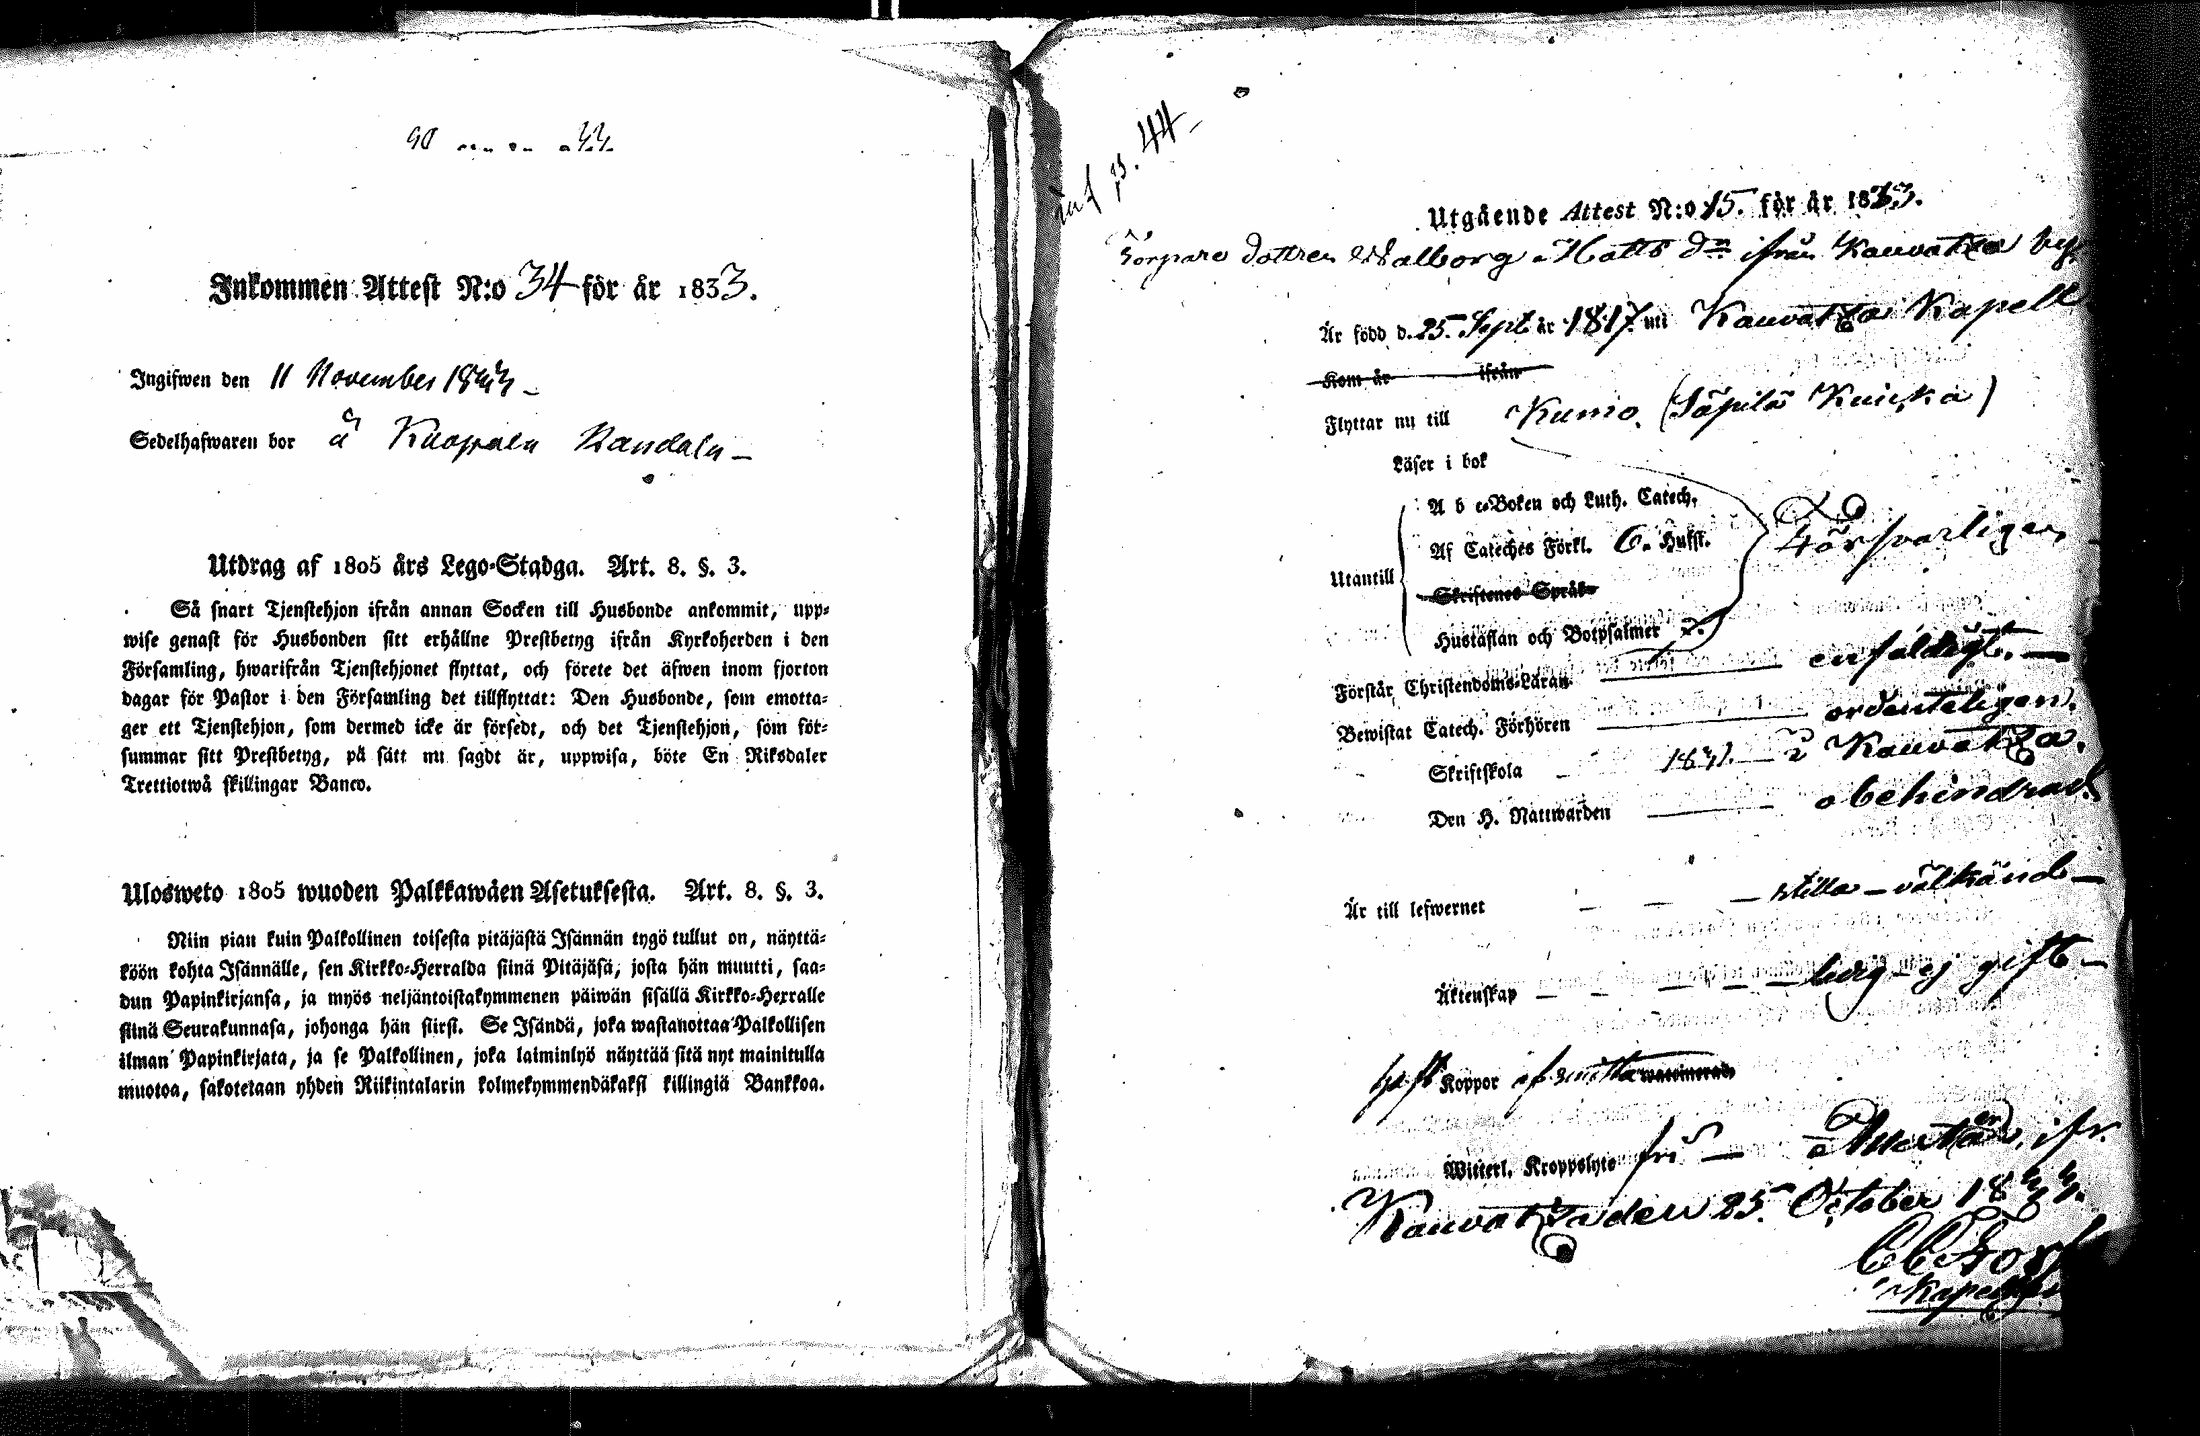 Inkommen Attest N:o 34 för år 1833.
Ingifwen den 11 November 1833
Sedelhafwaren bor å
Utdrag af 1805 års Lego-Stadga. Art. 8. §. 3.
Så snart Tjenstehjon ifrån annan Socken till Husbonde ankommit, upp-
wise genast för Husbonden sitt erhållne Prestbetyg ifrån Kyrkoherden i den
Församling, hwarifrån Tjenstehjonet flyttat, och förete det äfwen inom fjorton
dagar för Pastor i den Församling det tillflyttat: Den Husbonde, som emotta-
ger ett Tjenstehjon, som dermed icke är försedt, och det Tjenstehjon, som för-
summar sitt Prestbetyg, på sätt nu sagdt är, uppwisa, böte En Riksdaler
Trettiotwå skillingar Banco.
Ulosweto 1805 wuoden Palkkawäen Asetuksesta. Art. 8. §. 3.
Niin pian kuin Palkollinen toisesta pitäjästä Isännän tygö tullut on, näyttä-
köön kohta Isännälle, sen Kirkko-Herralda siinä Pitäjäsä, josta hän muutti, saa-
dun Papinkirjansa, ja myös neljäntoistakymmenen päiwän sisällä Kirkko-Herralle
siinä Seurakunnasa, johonga hän siirsi. Se Isändä, joka wastanottaa Palkollisen
ilman Papinkirjata, ja se Palkollinen, joka laiminlyö näyttää sitä nyt mainitulla
muotoa, sakotetaan yhden Riikintalarin kolmekymmendäkaksi killingiä Bankkoa.
p. 44
Utgående Attest N:o 15. för år 1833.
Torpare dottren Walborg Matts dr ifrån Kauvatza by
Är född d. 25. Sept år 1817. uti Kauvatza Kapell
Kom år ifrån
Flyttar nu till Kumo. (Säpilä Kuicka)
Läser i bok
A b c-Boken och Luth. Catech.
Af Cateches Förkl. 6. Hufst. Försvarligen
Utantill
Skriftenes Språk
Hustaflan och Botpsalmer 2.
Förstår Christendoms-Läran enfaldigt.
Bewistat Catech. Förhören ordenteligen.
Skriftskola i Kauvatza.
Den H. Nattwarden obehindrad.
Är till lefwernet stilla - välkänd
Äktenskap ledig - ej gift
haft Koppor af smitta waccinerad
Witterl. Kroppslyte fri - Attesterar, ifr.
Kauvatza den 25. October 1833.